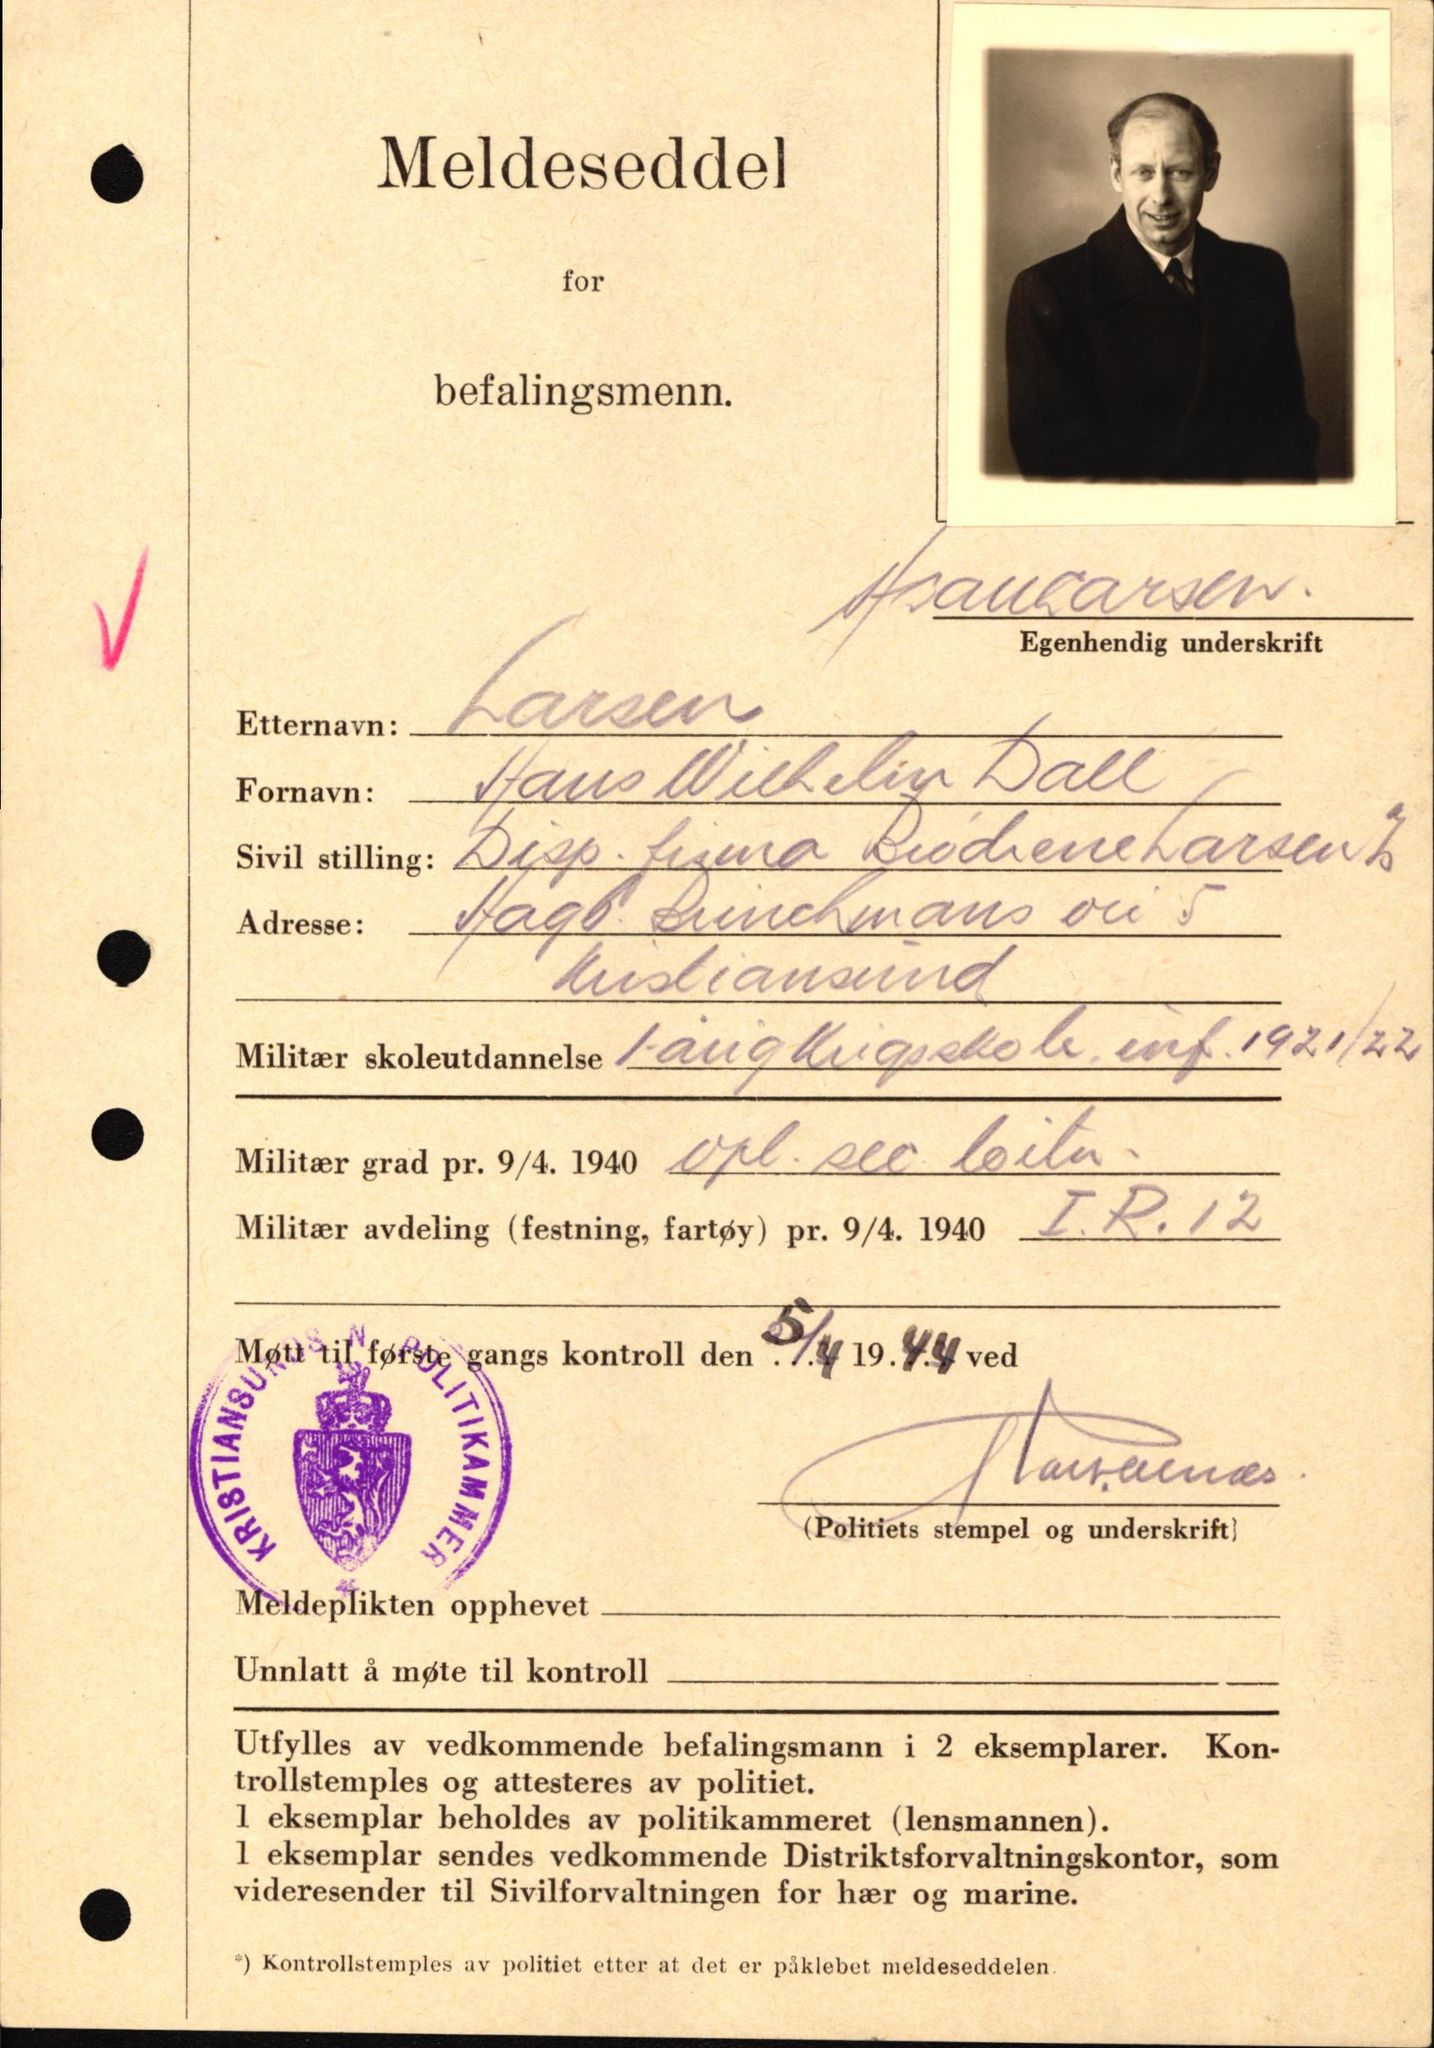 Meldeseddel
for
befalingsmenn.
Egenhendig underskrift
Etternavn: Larsen
Fornavn: Hans Wilhelm Dall
Sivil stilling: Disp. firma Brødrene Larsen
Adresse: Hagb. Brinchmans vei 5
Kristiansund
Militær skoleutdannelse 1-årig Krigsskole inf. 1921/22
Militær grad pr. 9/4. 1940 vpl. sec. løitn.
Militær avdeling (festning, fartøy) pr. 9/4. 1940 I.R. 12
Møtt til første gangs kontroll den 5/4 1944 ved
KRISTIANSUNDS N. POLITIKAMMER
(Politiets stempel og underskrift)
Meldeplikten opphevet
Unnlatt å møte til kontroll
Utfylles av vedkommende befalingsmann i 2 eksemplarer. Kon-
trollstemples og attesteres av politiet.
1 eksemplar beholdes av politikammeret (lensmannen).
1 eksemplar sendes vedkommende Distriktsforvaltningskontor, som
videresender til Sivilforvaltningen for hær og marine.
*) Kontrollstemples av politiet etter at det er påklebet meldeseddelen.